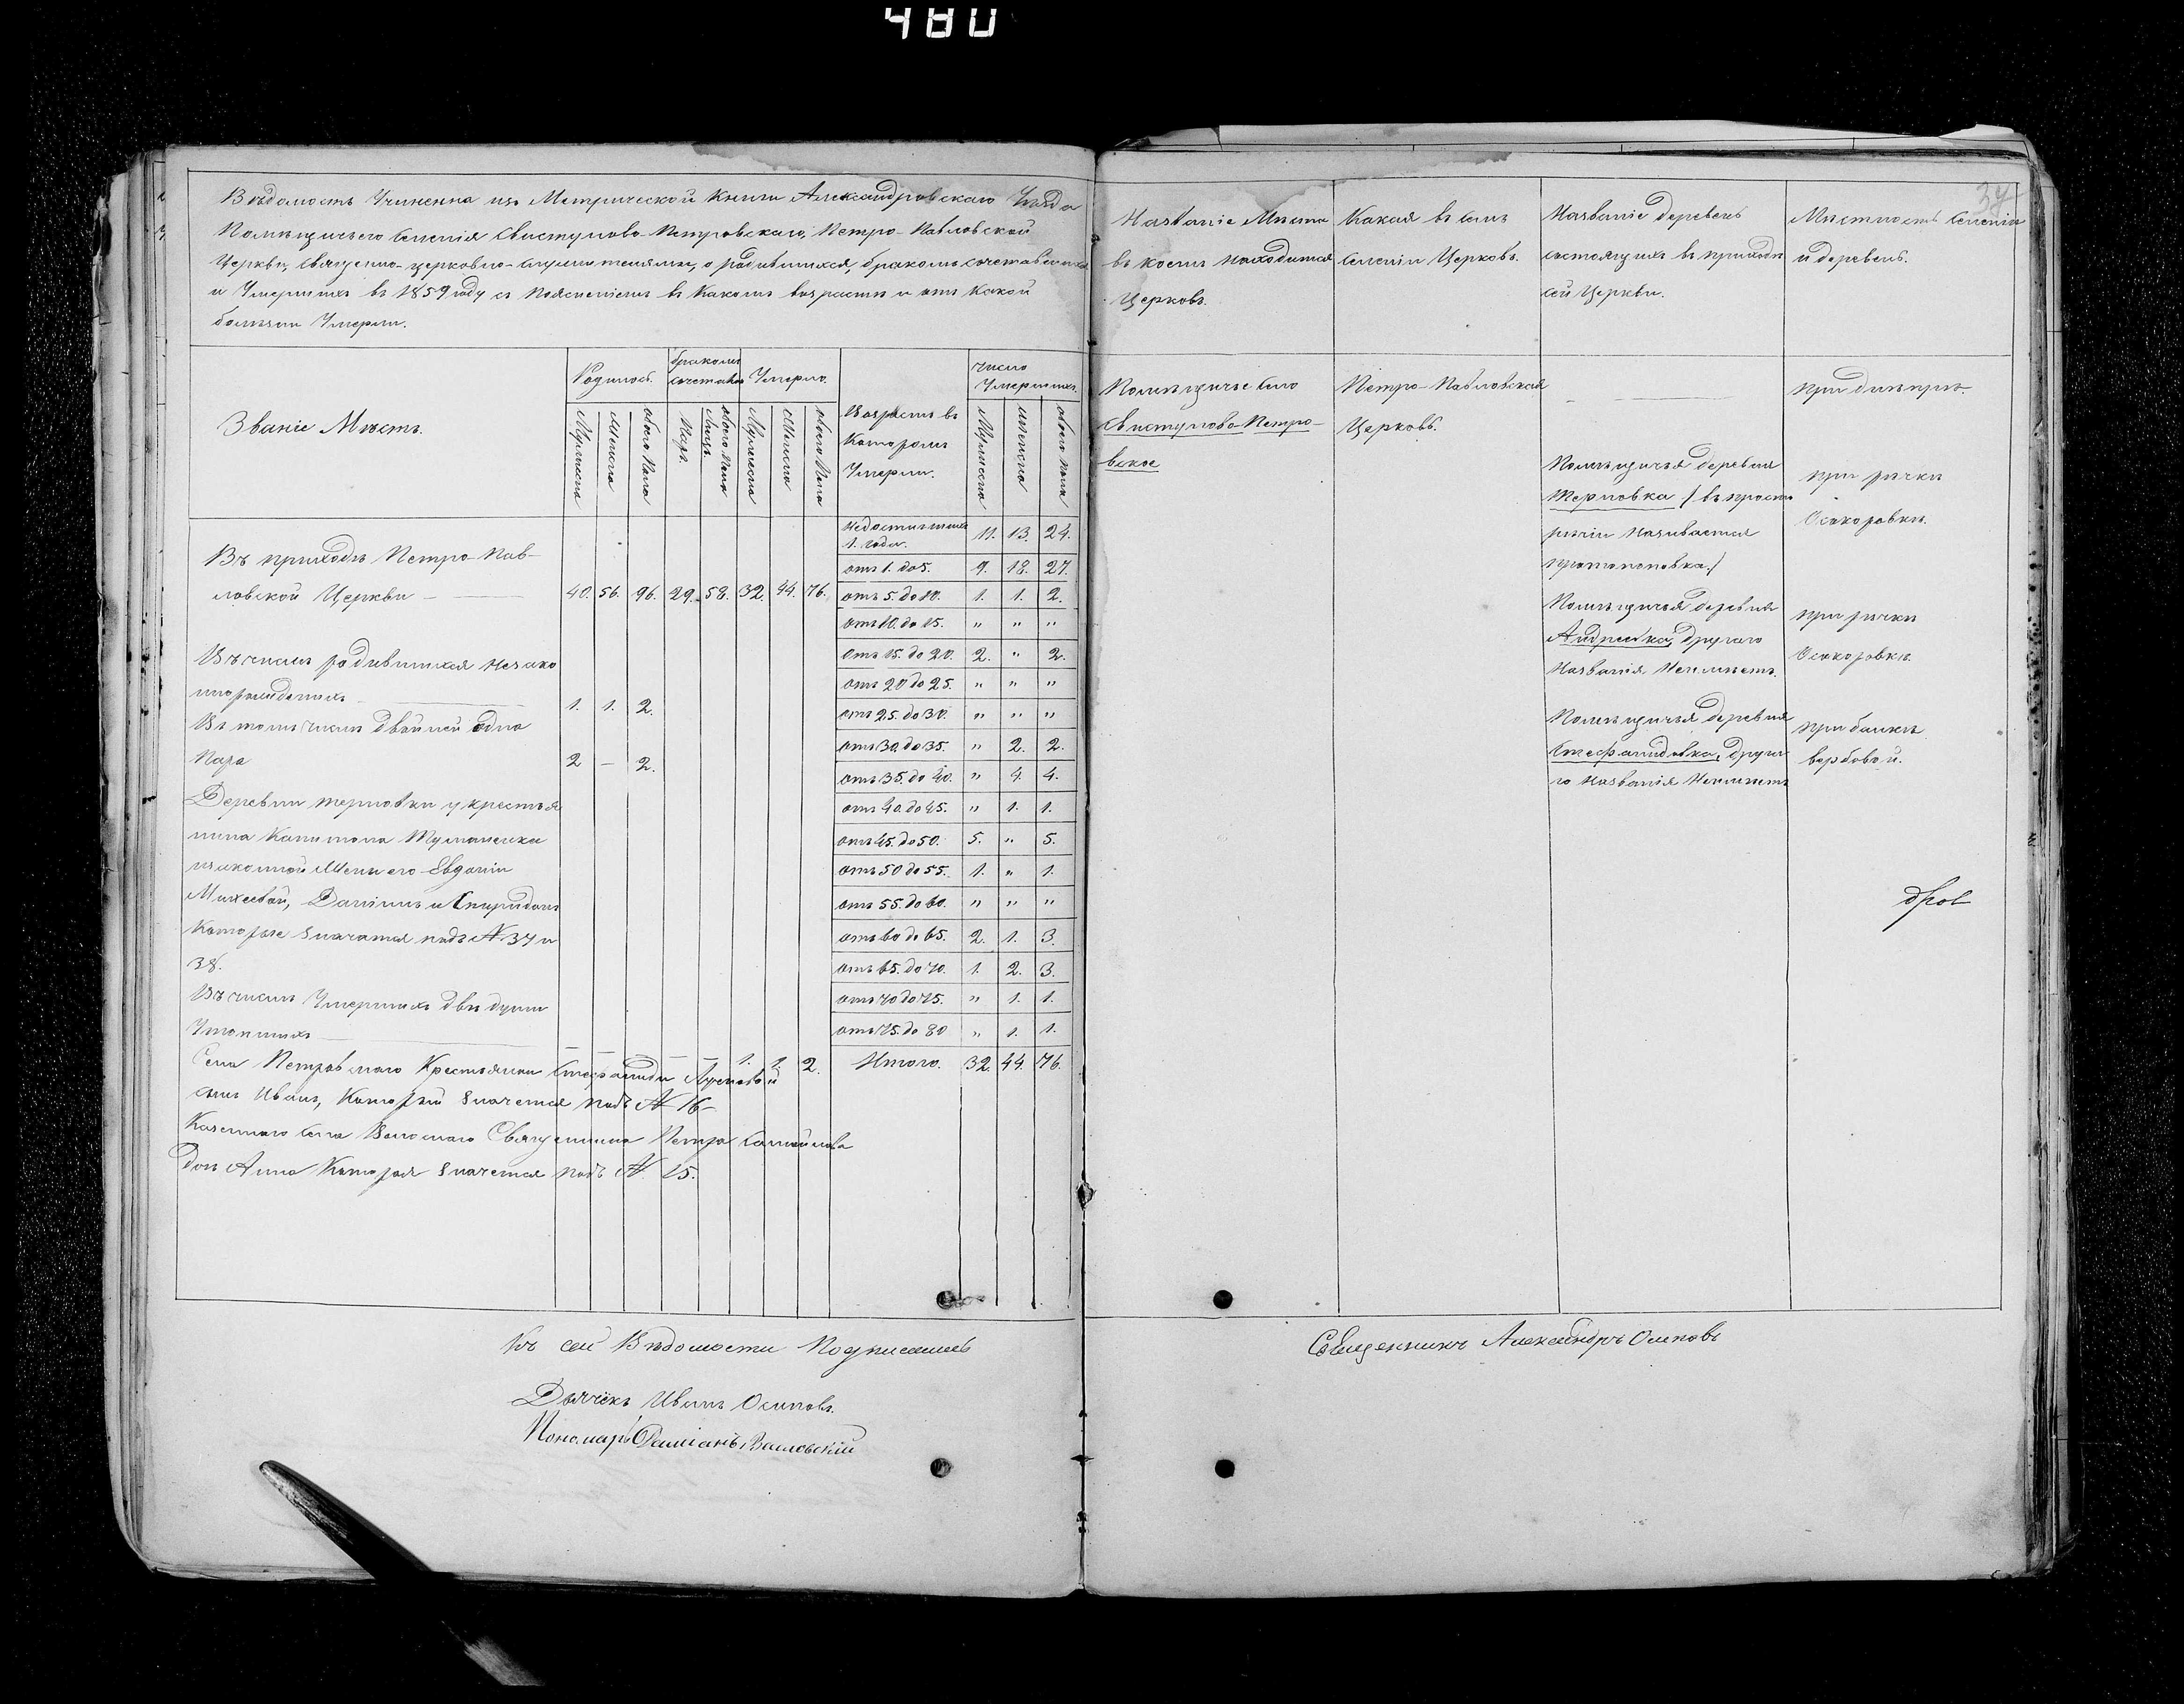 480
Вѣдомость Учиненна изъ Метрической Книги Александровскаго Уѣзда
Помѣщичьего Селенія Свистуново-Петровскаго, Петро-Павловской
Церкви, Священно-церковно-служителями, о родившихся, бракомъ сочетавшихся
и Умершихъ въ 1859 году съ поясненіемъ въ Какомъ возрастѣ и отъ Какой
болѣзни Умерли.
Званіе Мѣстъ.
Родилось.
бракомъ
сочетались
Умерло.
Мужеска
Женска
обоего Пола
Паръ.
обоего Пола
Лицъ.
Мужеска
Женска
обоего Пола
Возрастъ въ
Которомъ
Умерли.
Число
Умершихъ.
Мужеска
Женска
обоего пола
Въ приходѣ Петро-Пав-
ловской Церкви — 40. 56. 96. 29. 58. 32. 44. 76.
Въ числѣ родившихся незако
норожденныхъ 1. 1. 2.
Въ томъ числѣ двойней одна
Пара 2 — 2.
Деревни Терновки у крестья
нина Капитона
законной Жены его Евдокіи
Михеевой, Даніилъ и Спиридонъ
Которые значатся подъ № 37 и
38.
Въ числѣ Умершихъ двѣ души
Утопшихъ — — — — — 1. 1. 2.
Села Петровскаго Крестьянки Степаниды
сынъ Иванъ, Который значется подъ № 16 –
Казеннаго Села Священника Петра Самойлова
дочь Анна Которая значется подъ № 25.
Недостигшихъ
1. года. 11. 13. 24.
отъ 1. до 5. 9. 18. 27.
отъ 5. до 10. 1. 1. 2.
отъ 10. до 15. " " "
отъ 15. до 20. 2. " 2.
отъ 20 до 25. " " "
отъ 25. до 30. " " "
отъ 30. до 35. " 2. 2.
отъ 35. до 40. " 4. 4.
отъ 40. до 45. " 1. 1.
отъ 45. до 50. 5. " 5.
отъ 50 до 55. 1. " 1.
отъ 55. до 60. " " "
отъ 60 до 65. 2. 1. 3.
отъ 65. до 70. 1. 2. 3.
отъ 70 до 75. " 1. 1.
отъ 75. до 80 " 1. 1.
Итого. 32. 44. 76.
Къ сей Вѣдомости Подписались
Дьячекъ Иванъ Осиповъ.
Пономарь Даміанъ
Названіе Мѣста
въ коемъ находится
Церковь.
Какая въ семъ
Селеніи Церковь.
Названіе деревень
состоящихъ въ приходѣ
сей Церкви.
Мѣстность Селенія
и деревень.
Помѣщичье Село
Свистуново-Петро-
вское
Петро-Павловская
Церковь.
при днѣпрѣ.
Помѣщичья деревня
Терновка / въ просто
рѣчіи называется
протопоповка /
при рѣчки
Осокоровкѣ.
Помѣщичья деревня
Андреевка, другаго
названія Неимѣетъ.
при рѣчки
Осокоровкѣ.
Помѣщичья деревня
Степанидовка, друга
го названія Неимѣетъ
при балкѣ
вербовой.
Священникъ Александръ Осиповъ